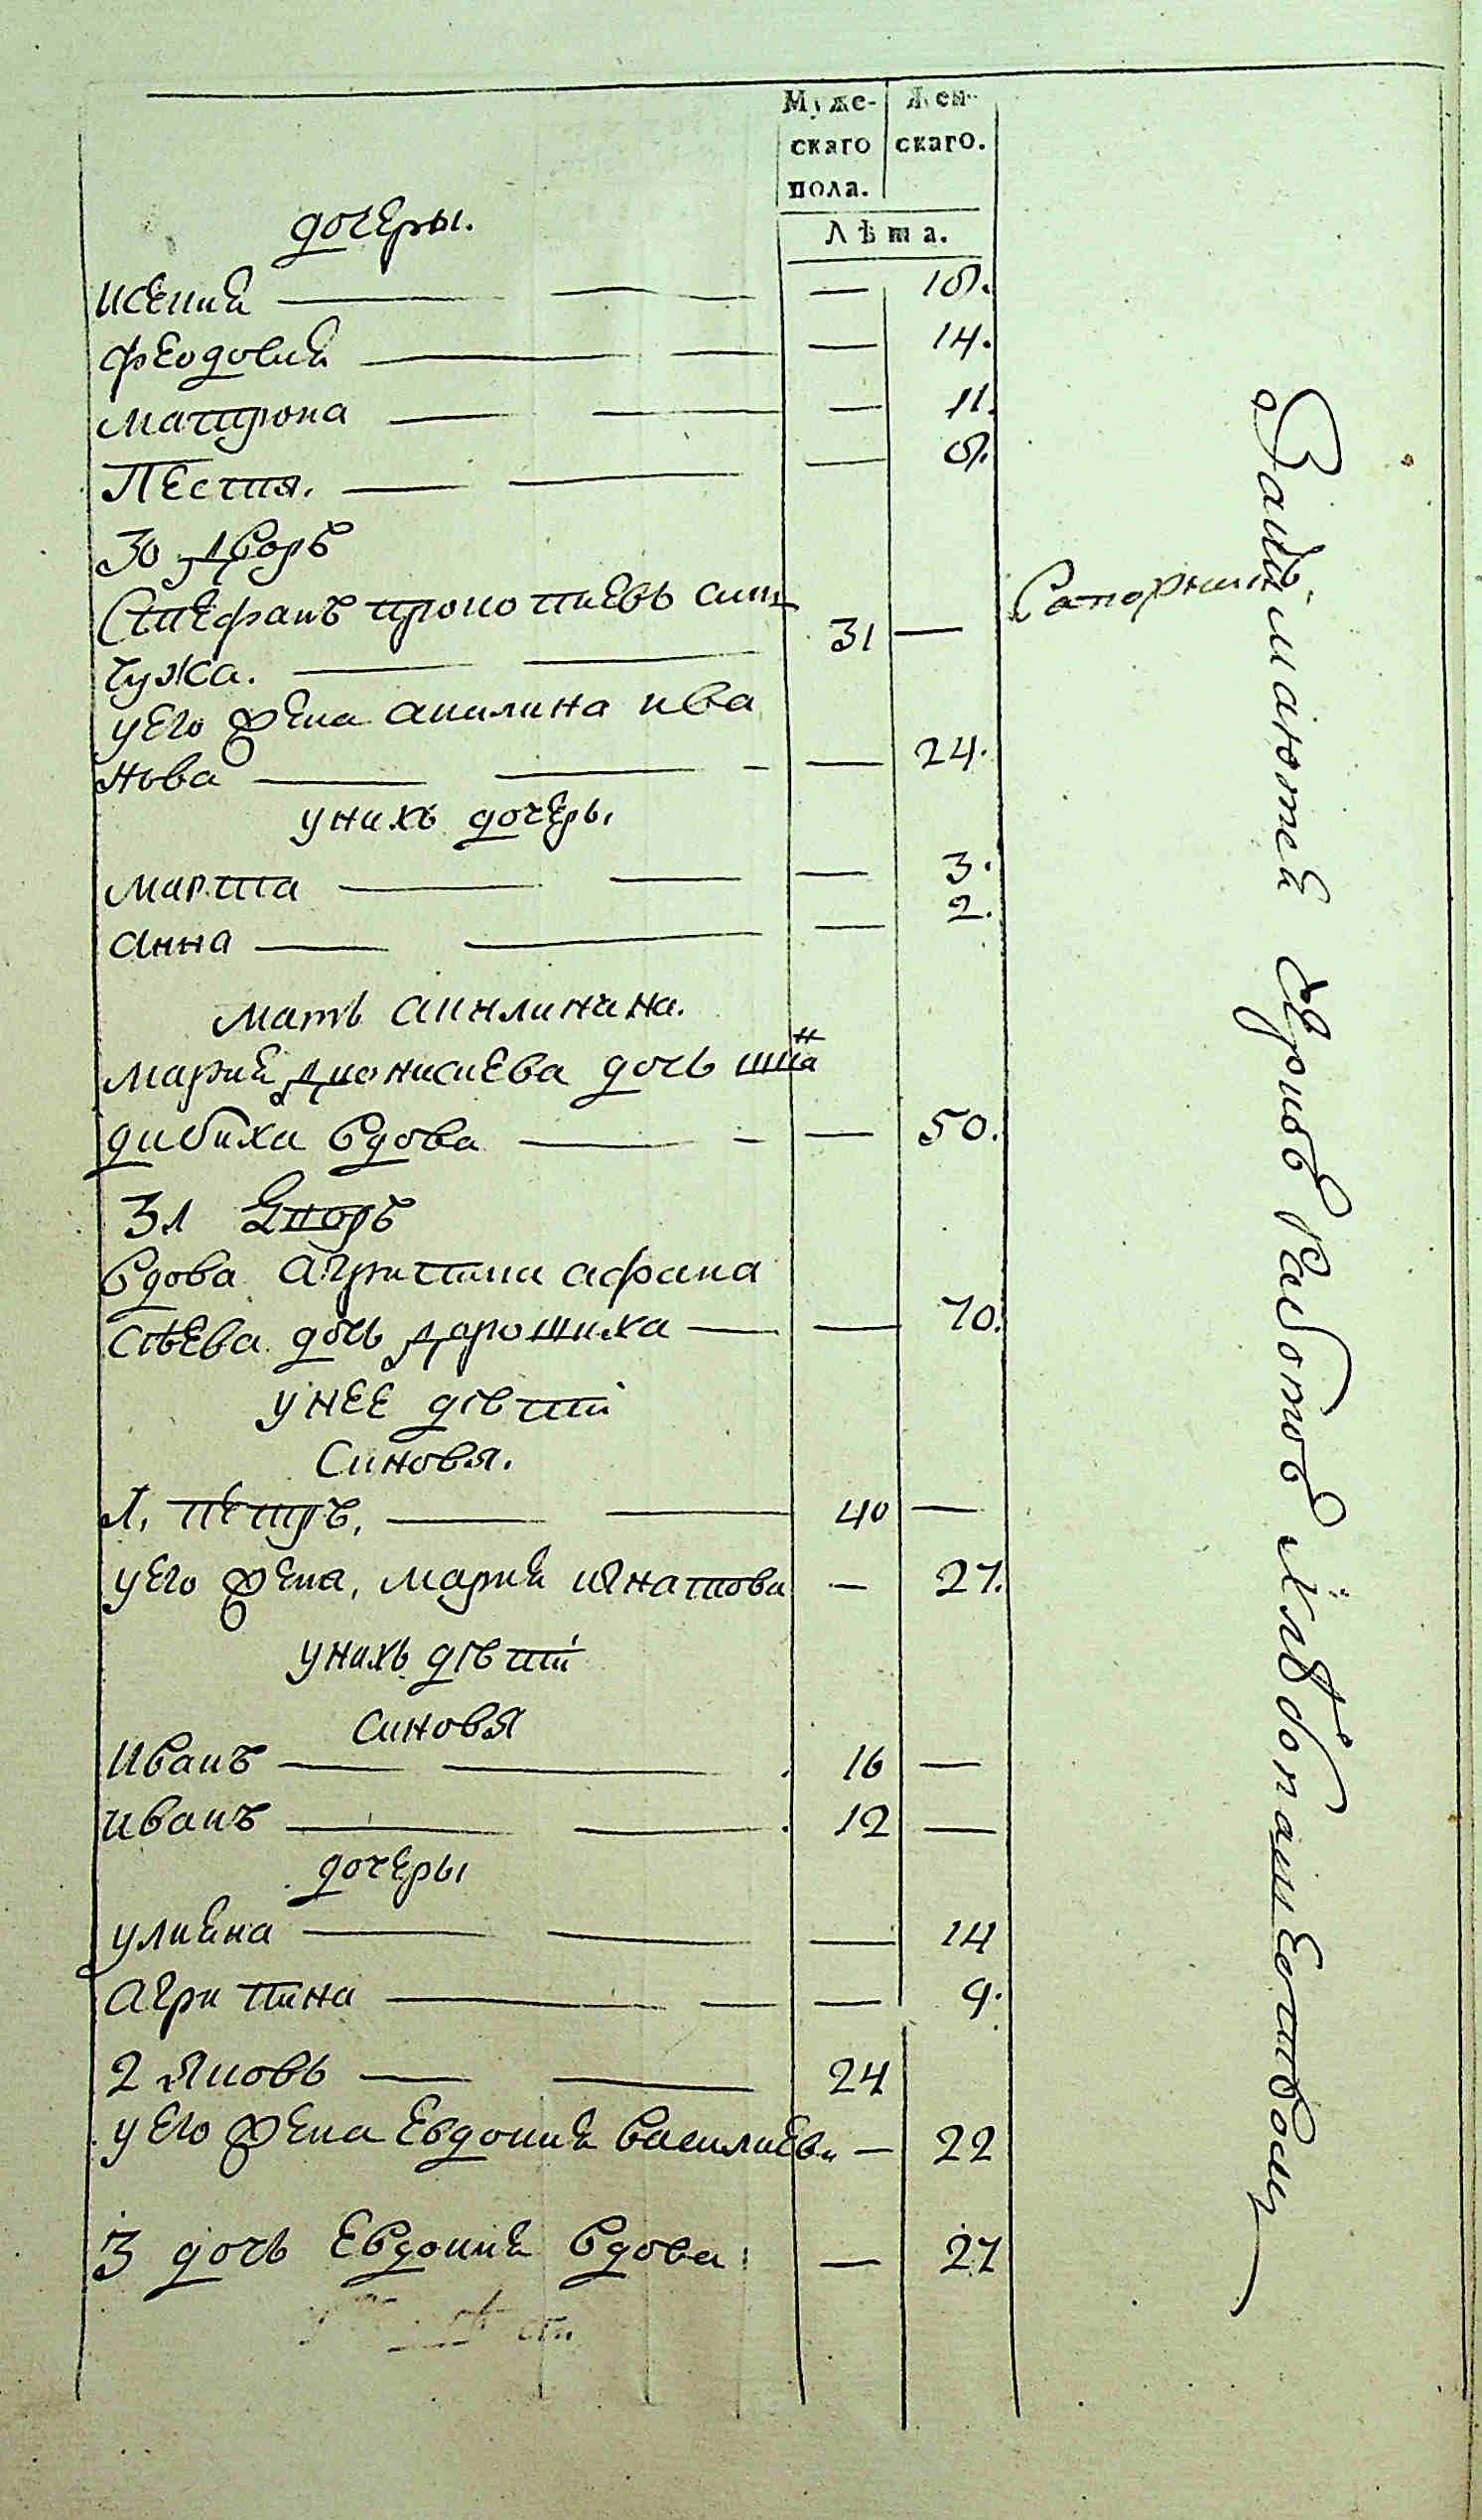 Муже- Жен-
скаго скаго.
пола.
Лѣта.
дочеры.
Ксений — 18.
Феодосия — 14.
Матрона — 11.
Пестя. — 8.
30 дворъ
Стефанъ прокопиевъ синъ
Чужа. 31 —
уего жена акилина ива
нова — 24.
унихъ дочеры
Марта — 3.
Анна — 2.
мать акилинина.
Мария дионисиева дочь
дибиха вдова — 50.
31 Дворъ
Вдова агрипина афана
сиева дочь дорошиха — 70.
унее дѣти
Синовя.
1, петръ, 40 —
уего жена, мария игнатова — 27.
унихъ дѣти
синовя
Иванъ 16 —
иванъ 12 —
дочеры
улияна — 14
агрипина — 9.
2 Яковъ 24
уего жена евдокия василиева — 22
3 дочь Евдокия вдова — 27